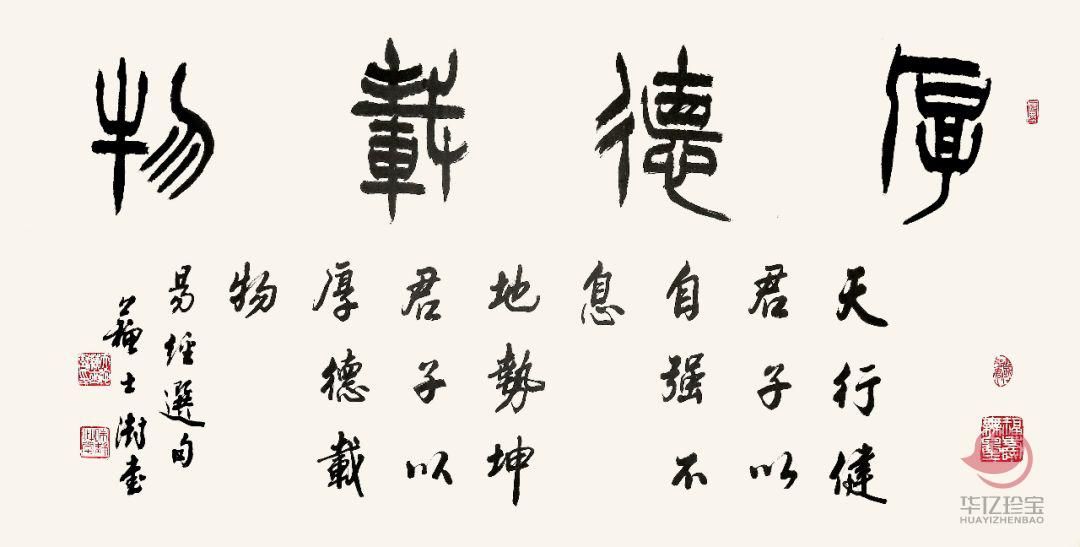 厚德載物
天行健
君子以
自强不
息
地勢坤
君子以
厚德載
物
易經選句
蘇士澍書
华亿珍宝
HUAYIZHENBAO